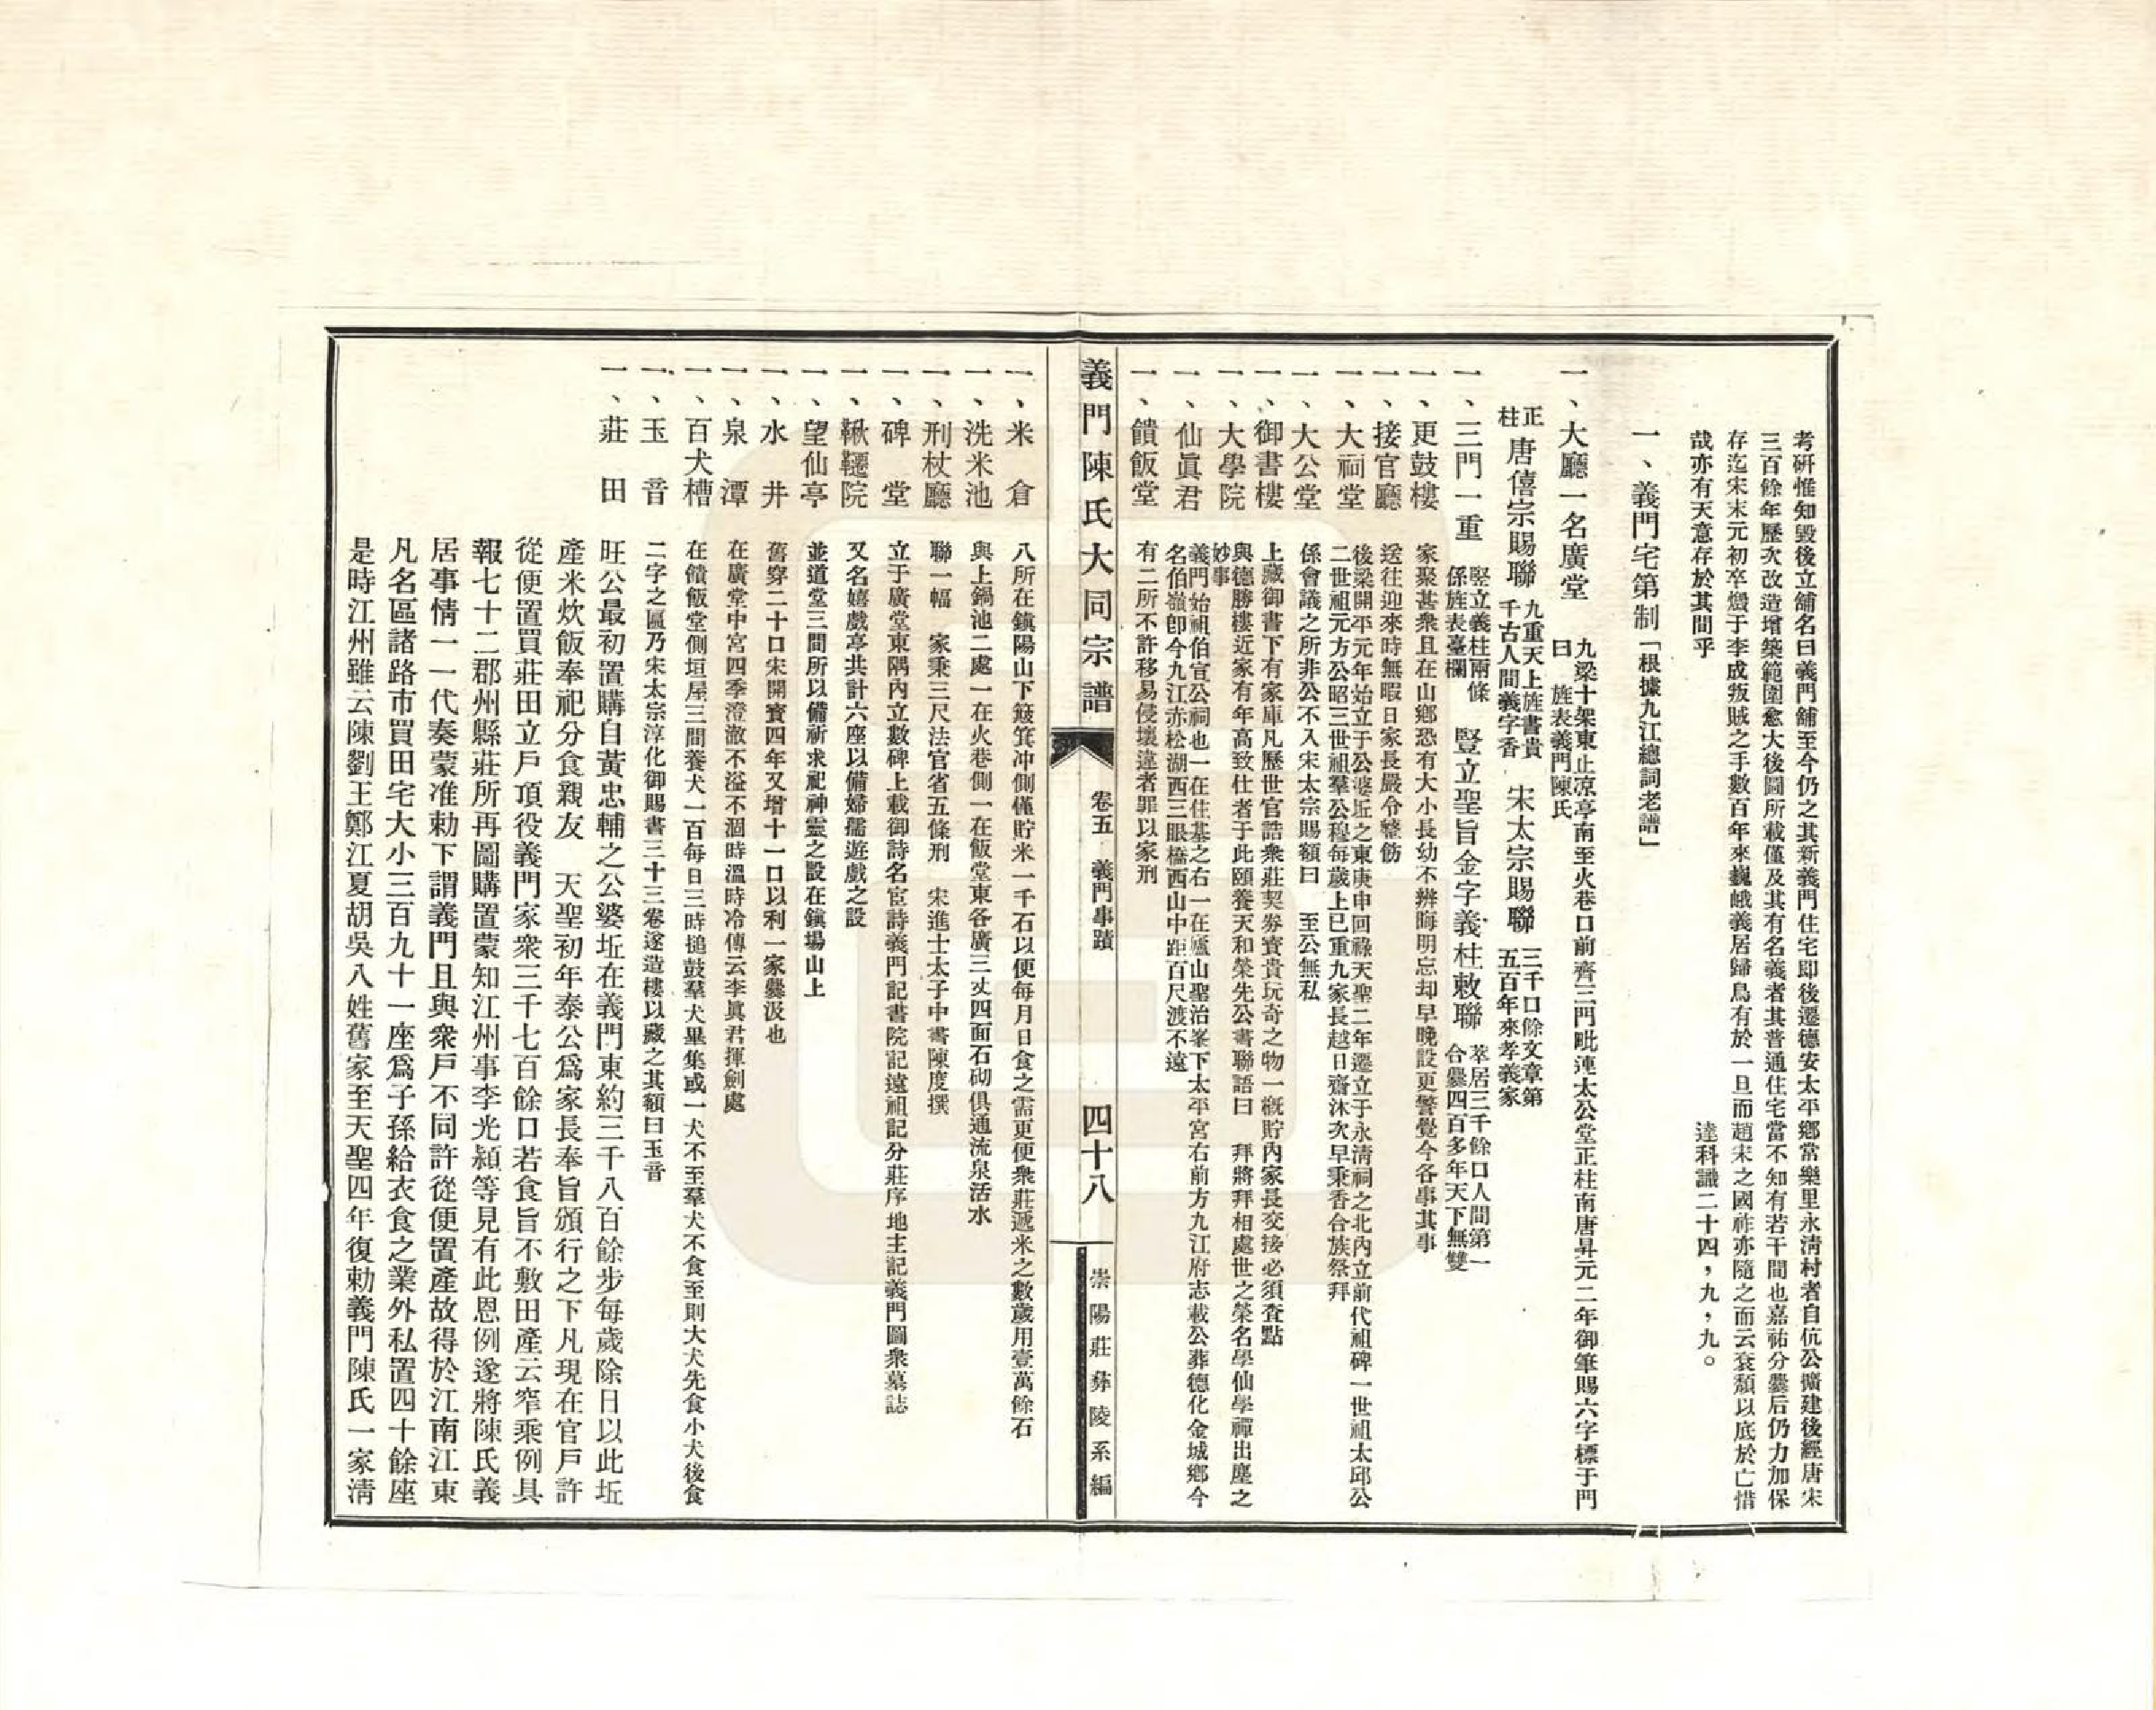 考硏惟知毀後立舖名曰義門舖至今仍之其新義門住宅即後遷德安太平鄉常樂里永淸村者自伉公擴建後經唐宋
三百餘年歷次改造增築範圍愈大後圖所載僅及其有名義者其普通住宅當不知有若干間也嘉祐分爨后仍力加保
存迄宋末元初卒燬于李成叛賊之手數百年來巍峨義居歸鳥有於一旦而趙宋之國祚亦隨之而云衰頹以底於亡惜
哉亦有天意存於其間乎　達科識二十四，九，九。
一、義門宅第制「根據九江總詞老譜」
一、大廳一名廣堂　九梁十架東止凉亭南至火巷口前齊三門毗連太公堂正柱南唐昇元二年御筆賜六字標于門
曰　旌表義門陳氏
正柱　唐僖宗賜聯　九重天上旌書貴　千古人間義字香　宋太宗賜聯　三千口餘文章第　五百年來孝義家
一、三門一重　堅立義柱兩條　係旌表臺欄　豎立聖旨金字義柱敕聯　萃居三千餘口人間第一　合爨四百多年天下無雙
一、更鼓樓　家聚甚衆且在山鄉恐有大小長幼不辨晦明忘却早晚設更警覺令各事其事
一、接官廳　送往迎來時無暇日家長嚴令整飭
一、大祠堂　後梁開平元年始立于公婆坵之東庚申回祿天聖二年遷立于永淸祠之北內立前代祖碑一世祖太邱公
二世祖元方公昭三世祖羣公穆每歲上巳重九家長越日齋沐次早秉香合族祭拜
一、大公堂　係會議之所非公不入宋太宗賜額曰　至公無私
一、御書樓　上藏御書下有家庫凡歷世官誥衆莊契券寶貴玩奇之物一槪貯內家長交接必須査點
一、大學院　與德勝樓近家有年高致仕者于此頤養天和榮先公書聯語曰　拜將拜相處世之榮名學仙學禪出塵之
妙事
一、仙眞君　義門始祖伯宣公祠也一在住基之右一在廬山聖治峯下太平宮右前方九江府志載公葬德化金城鄉今
名伯嶺卽今九江赤松湖西三眼橋西山中距百尺渡不遠
一、饋飯堂　有二所不許移易侵壞違者罪以家刑
義門陳氏大同宗譜　卷五　義門事蹟　四十八　崇陽莊彝陵系編
一、米倉　八所在鎭陽山下簸箕冲側僅貯米一千石以便每月日食之需更便衆莊遞米之數歲用壹萬餘石
一、洗米池　與上鍋池二處一在火巷側一在飯堂東各廣三丈四面石砌俱通流泉活水
一、刑杖廳　聯一幅　家乘三尺法官省五條刑　宋進士太子中書陳度撰
一、碑堂　立于廣堂東隅內立數碑上載御詩名宦詩義門記書院記遠祖記分莊序地主記義門圖衆墓誌
一、鞦韆院　又名嬉戲亭共計六座以備婦孺遊戲之設
一、望仙亭　並道堂三間所以備祈求祀神靈之設在鎭場山上
一、水井　舊穿二十口宋開寶四年又增十一口以利一家爨汲也
一、泉潭　在廣堂中宮四季澄澈不溢不涸時溫時冷傳云李眞君揮劍處
一、百犬槽　在饋飯堂側垣屋三間養犬一百每日三時搥鼓羣犬畢集或一犬不至羣犬不食至則大犬先食小犬後食
一、玉音　二字之匾乃宋太宗淳化御賜書三十三卷遂造樓以藏之其額曰玉音
一、莊田　旺公最初置購自黃忠輔之公婆坵在義門東約三千八百餘步每歲除日以此坵
產米炊飯奉祀分食親友　天聖初年泰公爲家長奉旨頒行之下凡現在官戶許
從便置買莊田立戶頂役義門家衆三千七百餘口若食旨不敷田產云窄乘例具
報七十二郡州縣莊所再圖購置蒙知江州事李光頴等見有此恩例遂將陳氏義
居事情一一代奏蒙准勅下謂義門且與衆戶不同許從便置產故得於江南江東
凡名區諸路市買田宅大小三百九十一座爲子孫給衣食之業外私置四十餘座
是時江州雖云陳劉王鄭江夏胡吳八姓舊家至天聖四年復勅義門陳氏一家淸